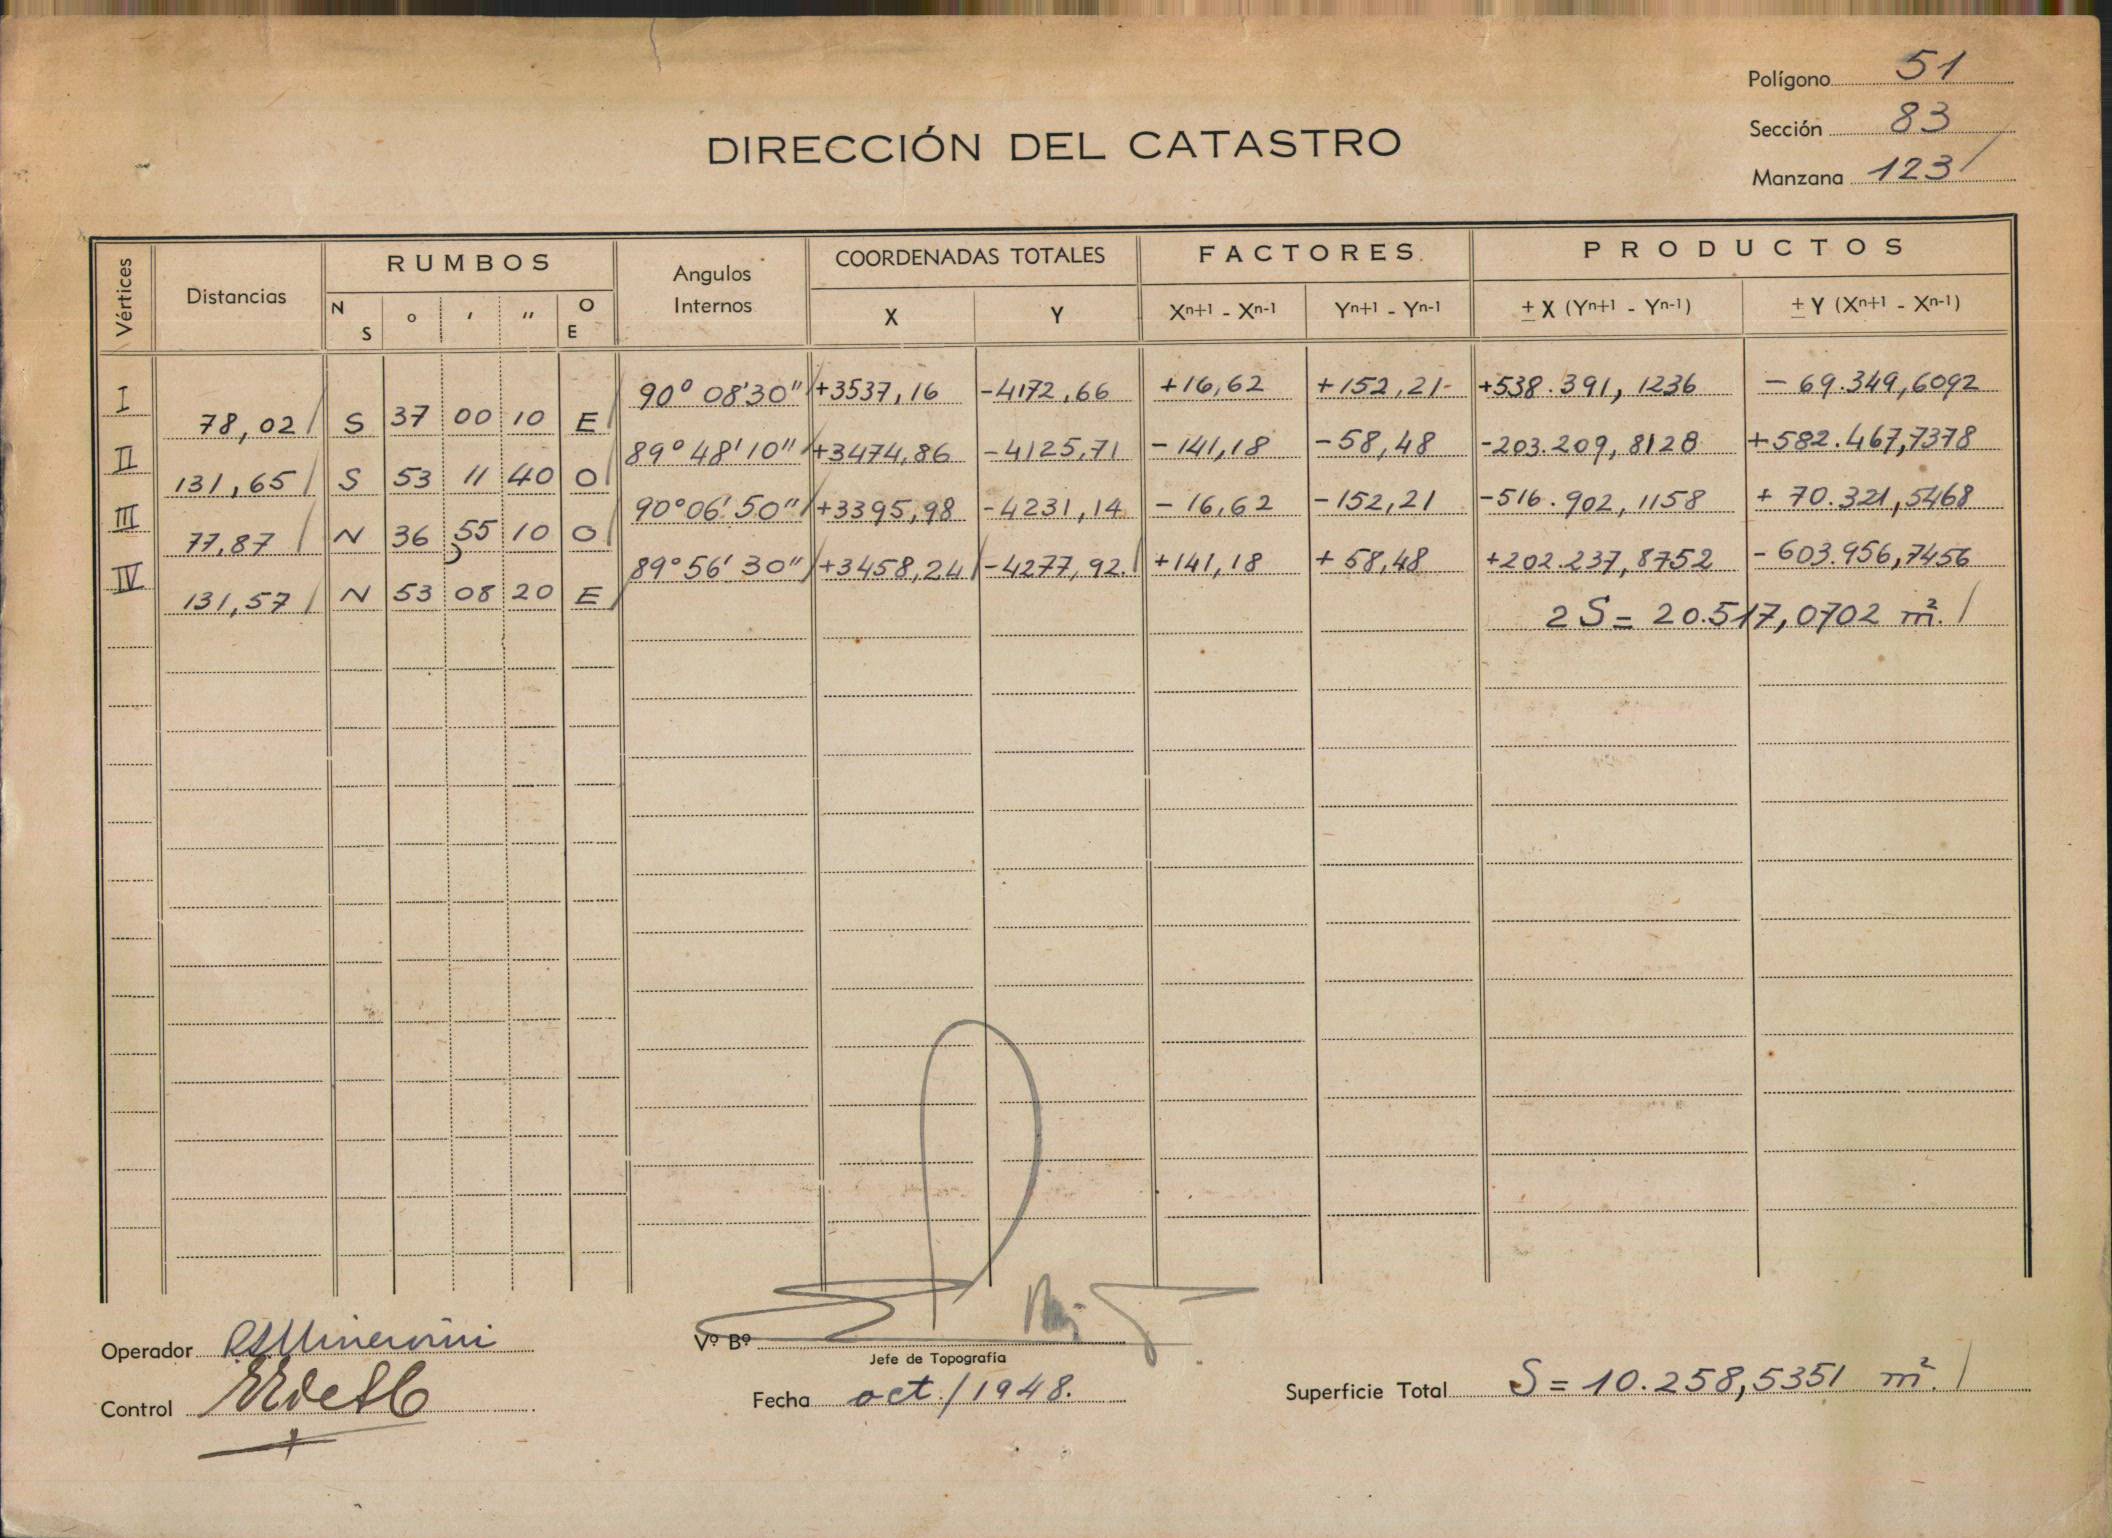 Polígono 51
Sección 83
Manzana 123
DIRECCIÓN DEL CATASTRO
Vértices Distancias RUMBOS Angulos Internos COORDENADAS TOTALES FACTORES. PRODUCTOS
N S ° ' " O E X Y Xn+1 - Xn-1 Yn+1 - Yn-1 ± X (Yn+1 - Yn-1) ± Y (Xn+1 - Xn-1)
I 90° 08'30" +3537,16 -4172,66 +16,62 +152,21 +538.391,1236 -69.349,6092
78,02 S 37 00 10 E
II 89° 48' 10" +3474,86 -4125,71 -141,18 -58,48 -203.209,8128 +582.467,7378
131,65 S 53 11 40 O
III 90° 06' 50" +3395,98 -4231,14 -16,62 -152,21 -516.902,1158 +70.321,5468
77,87 N 36 55 10 O
IV 89° 56' 30" +3458,24 -4277,92. +141,18 +58,48 +202.237,8752 -603.956,7456
131,57 N 53 08 20 E
2 S = 20.517,0702 m².
Operador
Control
Vº Bº
Jefe de Topografía
Fecha oct./1948.
Superficie Total S = 10.258,5351 m².